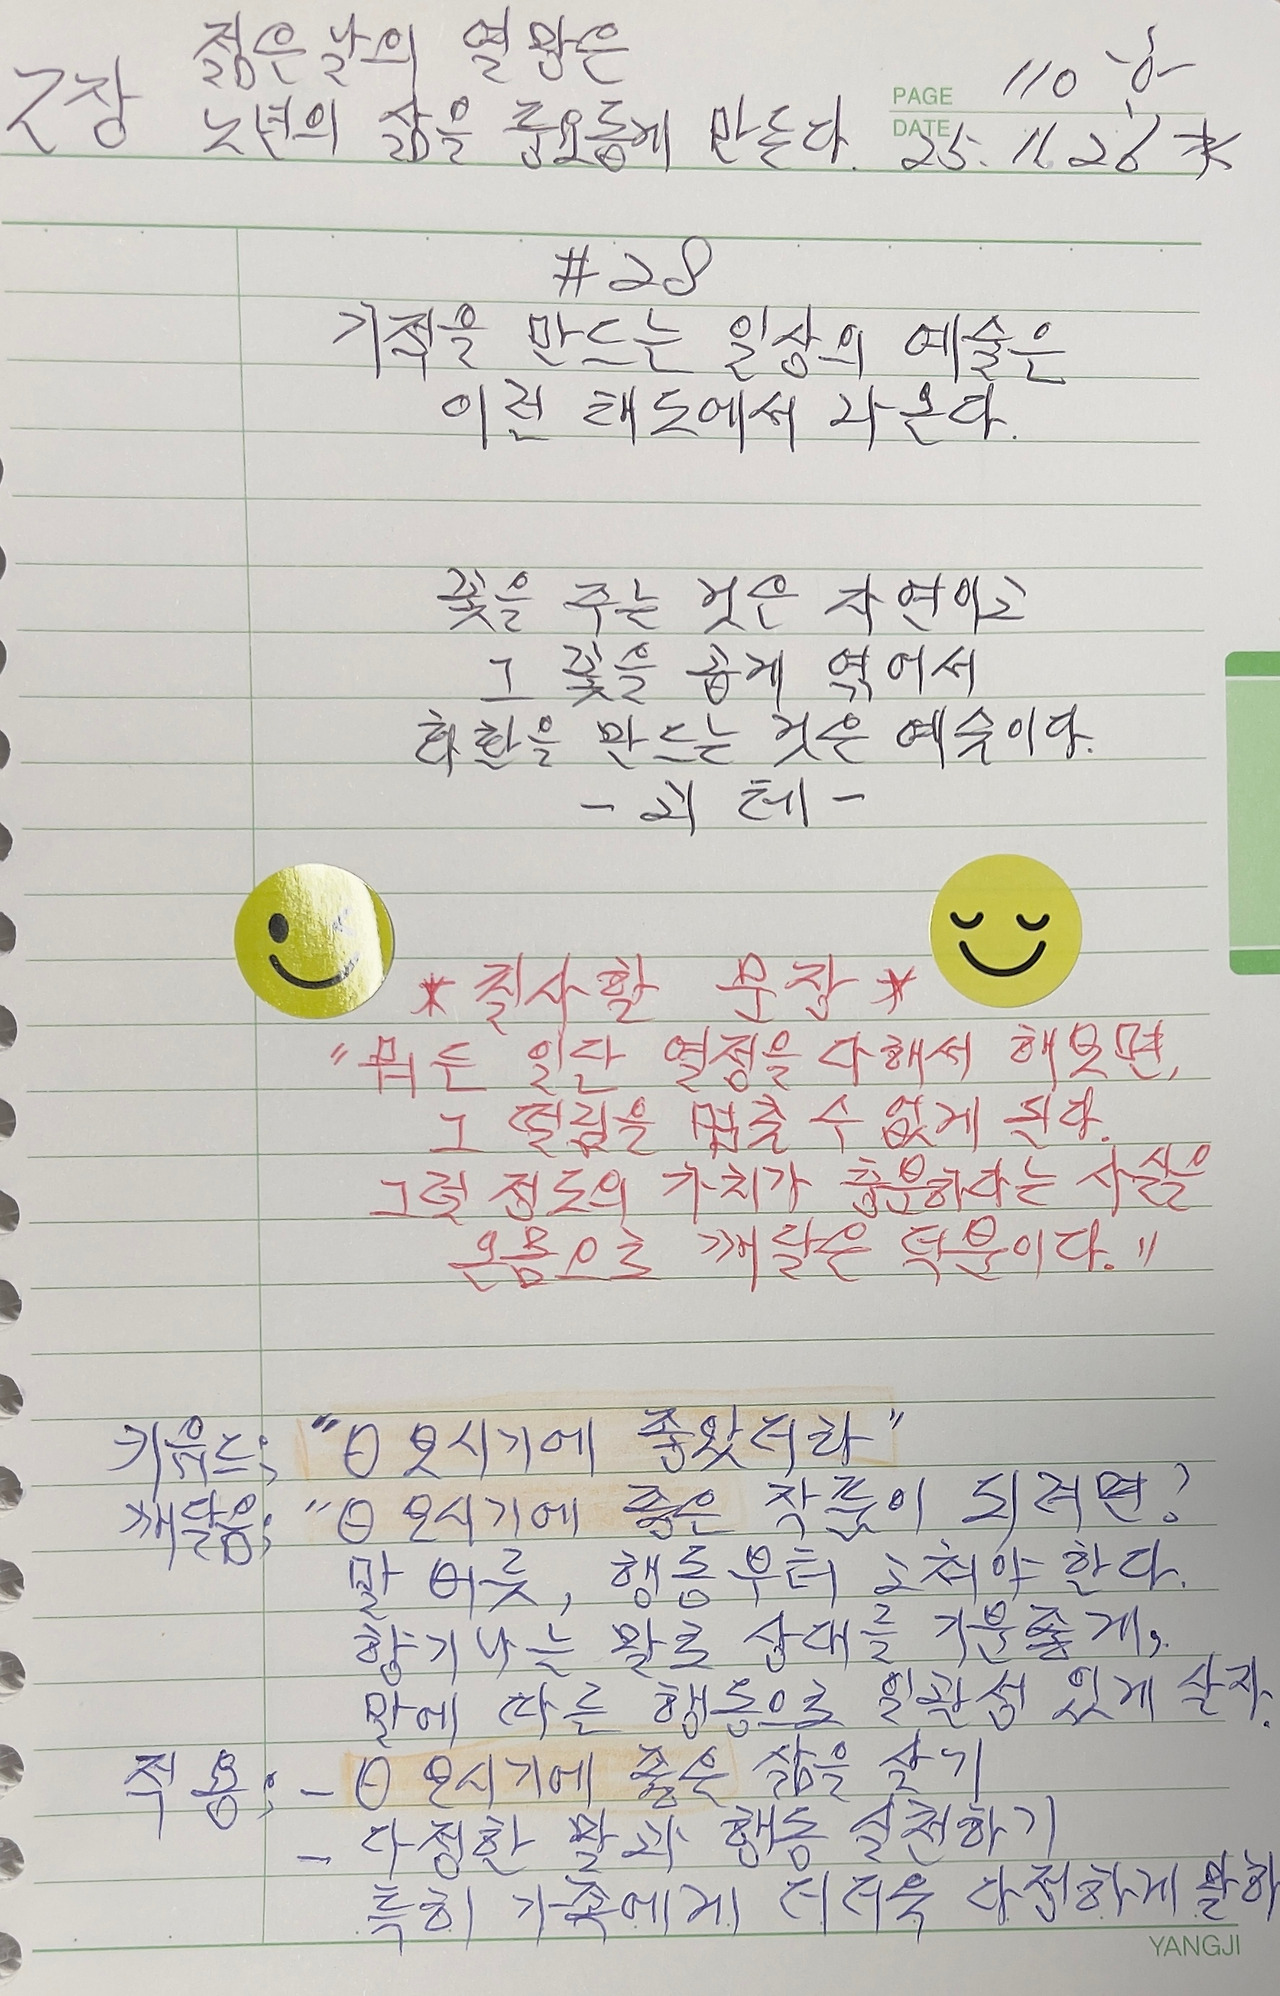 2장 젊은 날의 열망은
노년의 삶을 풍요롭게 만든다.
PAGE 110
DATE 25. 11. 28
#28
기적을 만드는 일상의 예술은
이런 태도에서 나온다.
꽃을 주는 것은 자연이고
그 꽃을 곱게 엮어서
화환을 만드는 것은 예술이다.
- 괴테 -
* 필사할 문장 *
"뭐든 일단 열정을 다해서 해보면,
그 떨림을 멈출 수 없게 된다.
그럴 정도의 가치가 충분하다는 사실을
온몸으로 깨달은 덕분이다."
키워드; "θ 보시기에 좋았더라"
깨달음; "θ 보시기에 좋은 작품이 되려면?
말 버릇, 행동부터 고쳐야 한다.
향기나는 말로 상대를 기분좋게,
말에 따른 행동으로 일관성 있게 살자.
적용; - θ 보시기에 좋은 삶을 살기
- 다정한 말과 행동 실천하기
특히 가족에게 더더욱 다정하게 말하
YANGJI